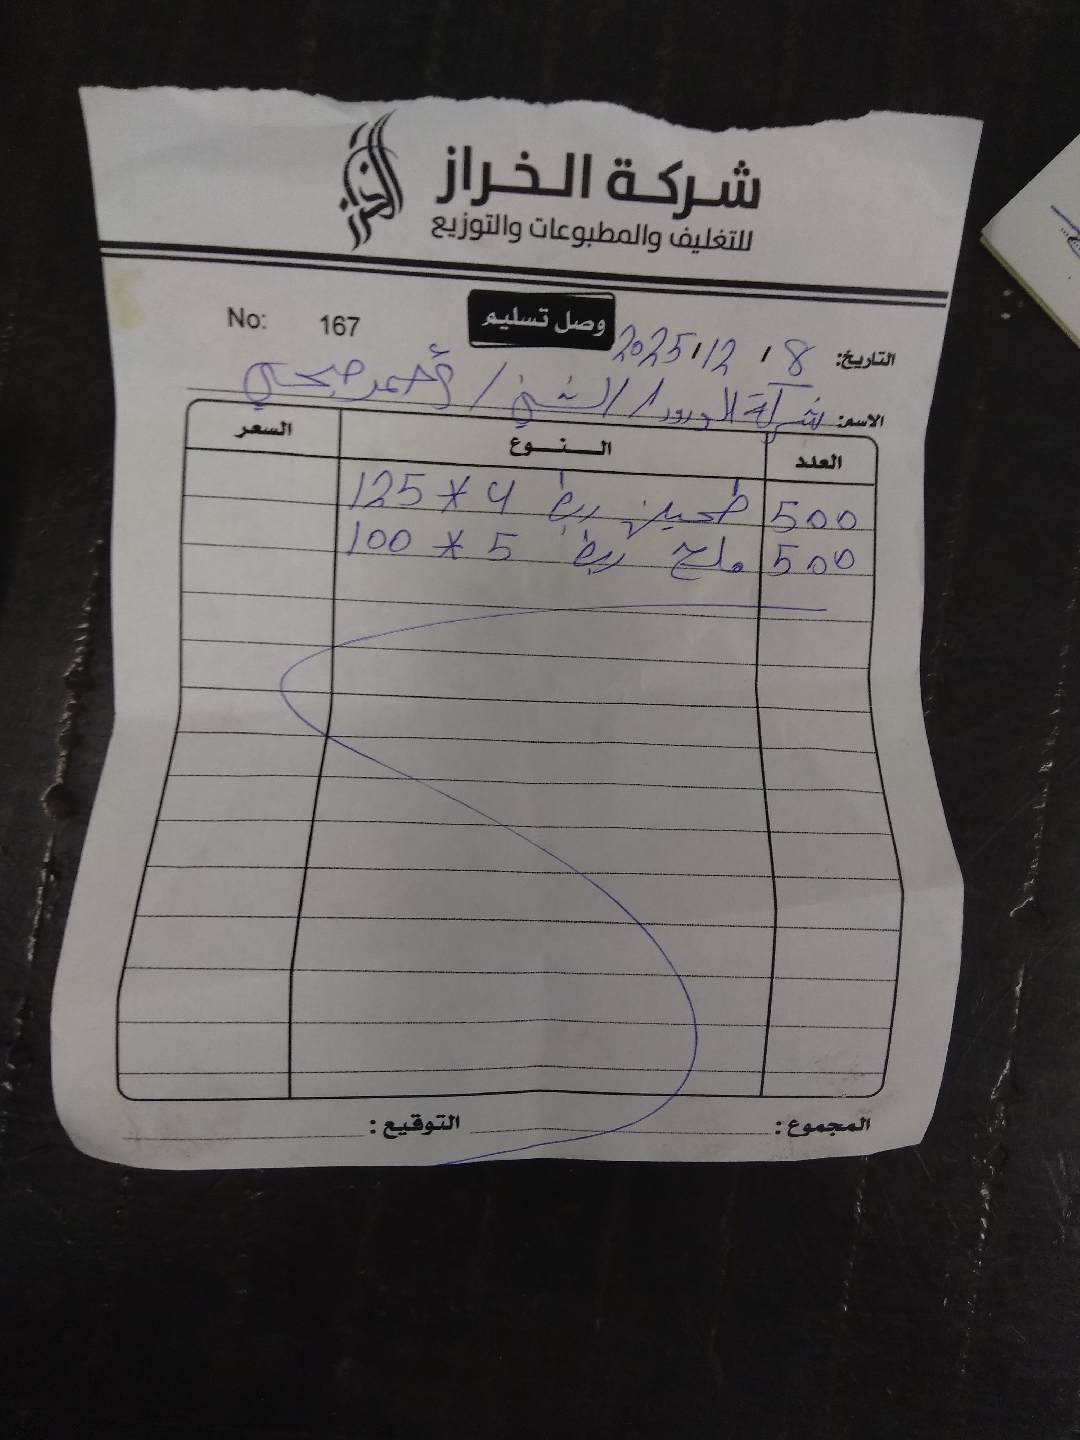 شركة الخراز
للتغليف والمطبوعات والتوزيع
الخراز
No: 167
وصل تسليم
التاريخ: 8 / 12 / 2025
الاسم: شركة الورود / الشيخ / أحمد صبحي
العدد النوع السعر
500 طحين ربط 4 * 125
500 ملح ربط 5 * 100
المجموع: التوقيع: